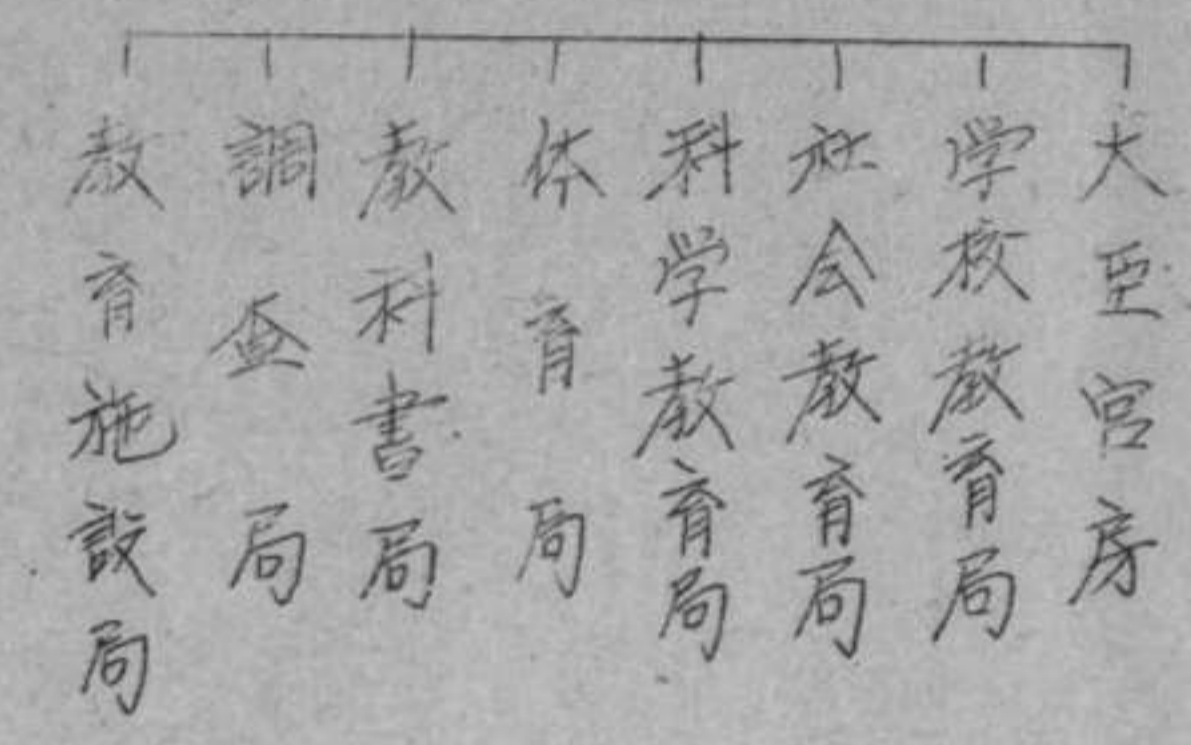 大臣官房
学校教育局
社会教育局
科学教育局
体育局
教科書局
調査局
教育施設局